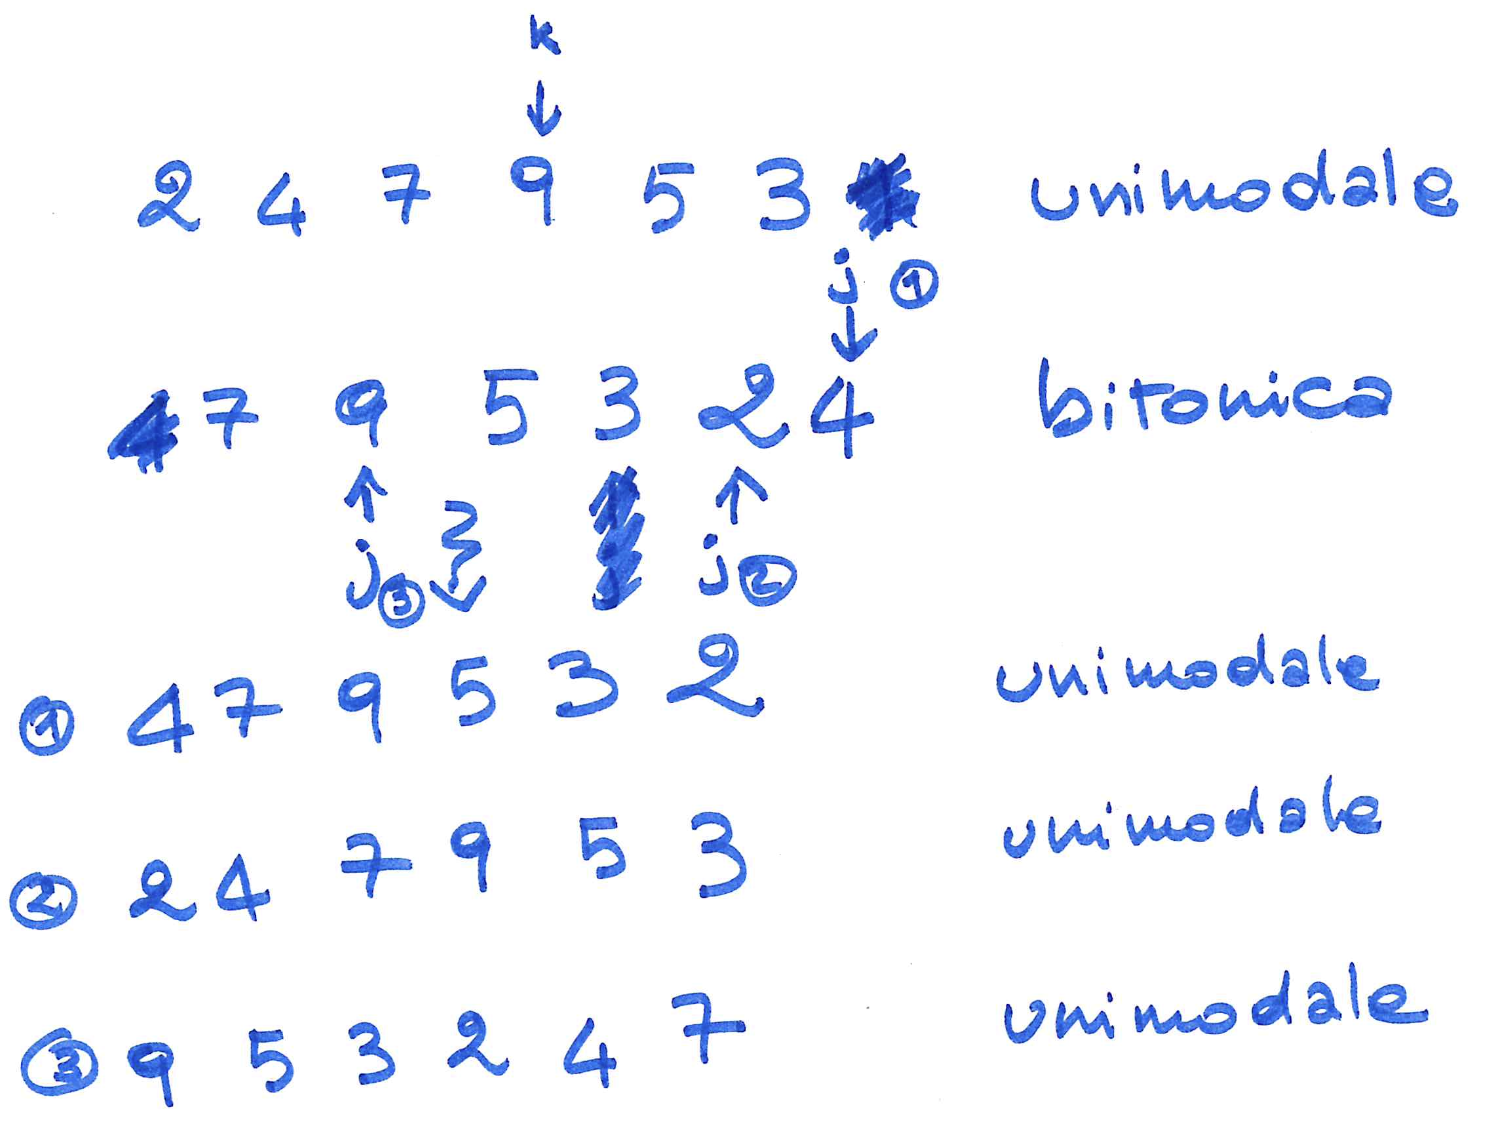 k
↓
2 4 7 9 5 3 unimodale
j ①
↓
7 9 5 3 2 4 bitonica
↑ ↑
j ③ j ②
① 4 7 9 5 3 2 unimodale
② 2 4 7 9 5 3 unimodale
③ 9 5 3 2 4 7 unimodale